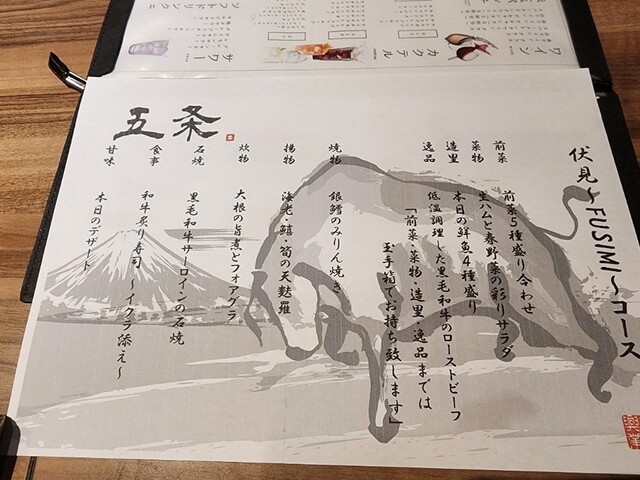 伏見～FUSIMI～コース
前菜 前菜5種盛り合わせ
菜物 生ハムと春野菜の彩りサラダ
造里 本日の鮮魚4種盛り
逸品 低温調理した黒毛和牛のローストビーフ
「前菜・菜物・造里・逸品までは
玉手箱でお持ち致します」
焼物 銀鱈のみりん焼き
揚物 海老・鱚・筍の天麩羅
炊物 大根の旨煮とフォアグラ
石焼 黒毛和牛サーロインの石焼
食事 和牛炙り寿司 ～イクラ添え～
甘味 本日のデザート
五条
ワイン
カクテル
サワー
ソフトドリンク